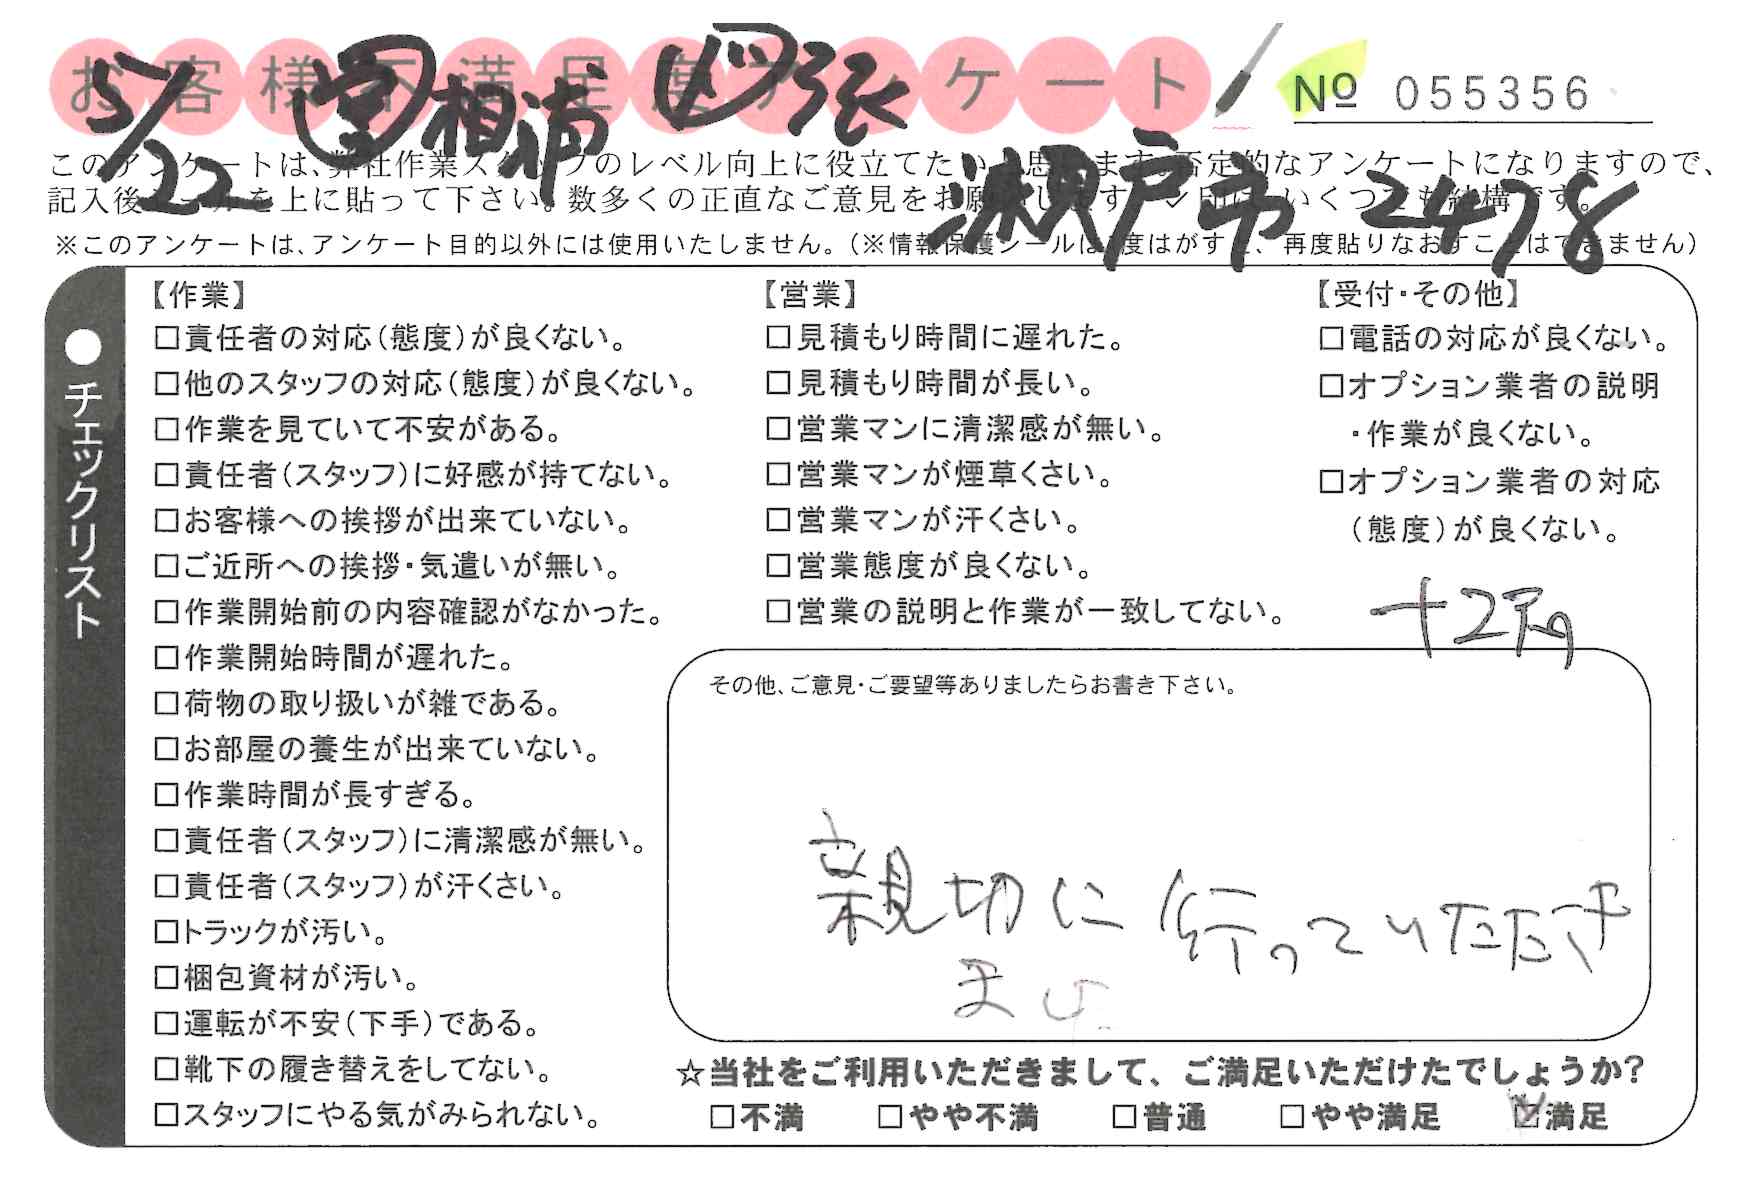 お客様不満足度アンケート
No 055356
5/22 営 相浦 図 引越
瀬戸市 2478
このアンケートは、弊社作業スタッフのレベル向上に役立てたいと思います。否定的なアンケートになりますので、
記入後シールを上に貼って下さい。数多くの正直なご意見をお願いします。
※このアンケートは、アンケート目的以外には使用いたしません。(※情報保護シールは1度はがすと、再度貼りなおすことはできません)
●チェックリスト
【作業】
□責任者の対応(態度)が良くない。
□他のスタッフの対応(態度)が良くない。
□作業を見ていて不安がある。
□責任者(スタッフ)に好感が持てない。
□お客様への挨拶が出来ていない。
□ご近所への挨拶・気遣いが無い。
□作業開始前の内容確認がなかった。
□作業開始時間が遅れた。
□荷物の取り扱いが雑である。
□お部屋の養生が出来ていない。
□作業時間が長すぎる。
□責任者(スタッフ)に清潔感が無い。
□責任者(スタッフ)が汗くさい。
□トラックが汚い。
□梱包資材が汚い。
□運転が不安(下手)である。
□靴下の履き替えをしてない。
□スタッフにやる気がみられない。
【営業】
□見積もり時間に遅れた。
□見積もり時間が長い。
□営業マンに清潔感が無い。
□営業マンが煙草くさい。
□営業マンが汗くさい。
□営業態度が良くない。
□営業の説明と作業が一致してない。
【受付・その他】
□電話の対応が良くない。
□オプション業者の説明
・作業が良くない。
□オプション業者の対応
(態度)が良くない。
その他、ご意見・ご要望等ありましたらお書き下さい。
親切に行っていただき
まし
☆当社をご利用いただきまして、ご満足いただけたでしょうか?
□不満 □やや不満 □普通 □やや満足 ☑満足